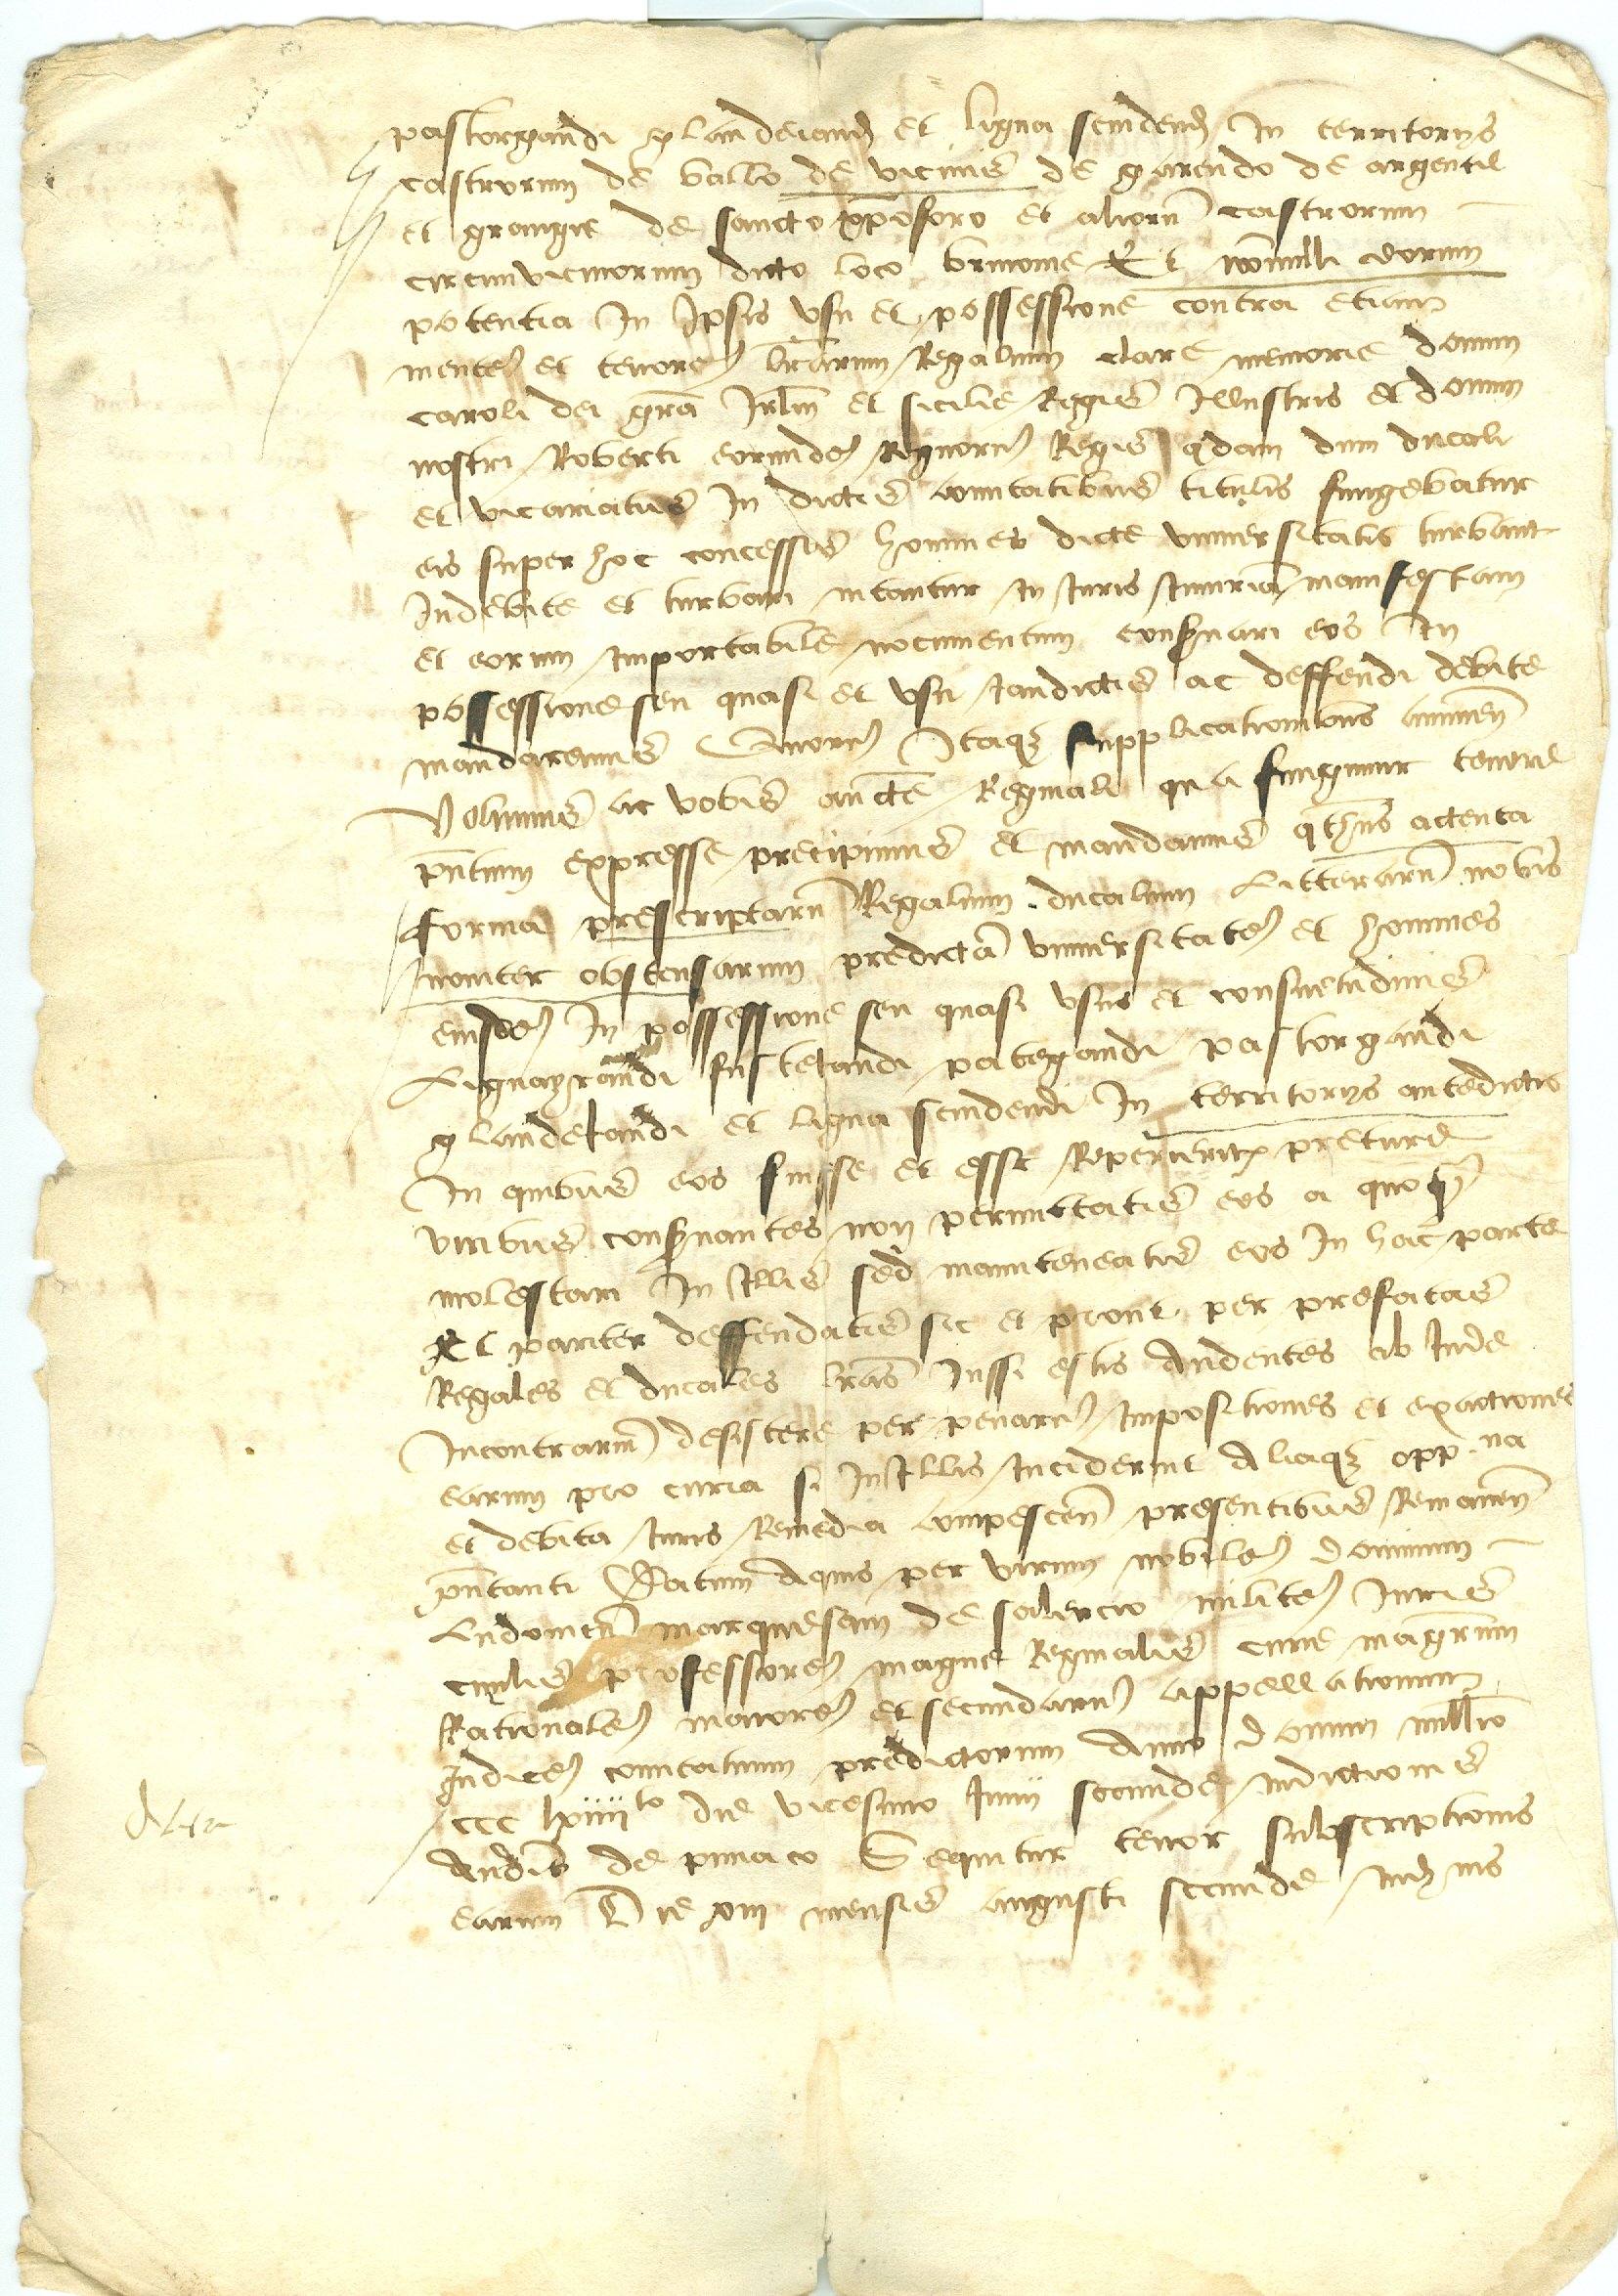 pastorgandi glandeiand et ligna scindend in territoriis
castrorum de vallo de vicinis de garendo de argentil
et grangie de sancto xpoforo et aliorum castrorum
circumvicinorum dicto loco brinonie Et nonnulli eorum
potentia in Ipsis usu et possessione contra etiam
mentem et tenorem lrarum Regalium clare memorie domini
caroli dei gra Jrlm et sicilie Regis Illustris et domini
nostri Roberti eorundem Regnorum Regis qdam dum ducali
et vicariatus In dictis comitatibus titulis fungebatur
eis super hoc concessis homines dicte universitatis turbant
Indebite et turbari nitantur in Juris Iniuriam manifestam
et eorum importabile nocumentum conservari eos In
possessione seu quasi et usu iandictis ac deffendi debite
mandaremus Quorum Itaque supplicationibus annuen
Volumus ac vobis aucte Reginali qua fungimur tenore
pntium expresse precipimus et mandamus qthnus actenta
forma prescriptarum Regalium ducalium Litterarum nobis
noviter obstensarum predictam universitatem et homines
eiusdem In possessione seu quasi usus et consuetudinis
Lignayrandi fustetandi pategandi pastorgandi
glandetandi et ligna scindendi In territoriis antedictis
In quibus eos fuisse et esse Repereritis preture
viribus conservantes non permittatis eos a quoquam
molestari In Illis sed manuteneatis eos In hac parte
Et pariter deffendatis sic et prout per prefatas
Regales et ducales lras Jussi estis Audentes ab Inde
Incontrarium desistere per penarum impositiones et exactiones
earum pro curia si In Illis inciderint Aliaque opp.na
et debita iuris Remedia compescen presentibus Remanen
pntanti Datum Aquis per virum nobilem dominum
Ludovicum marquesani de salercio militem Juris
civilis professorem magne Reginalis curie magrum
Rationalem maiorem et secundarum appellationum
Judicem comitatuum predictorum Anno domini millio
ccc lxiiii to die vicesimo Junii secunde indictionis
de pimaco Sequitur tenor subscriptionis
earum Die xiii mensis augusti secunde ind nis